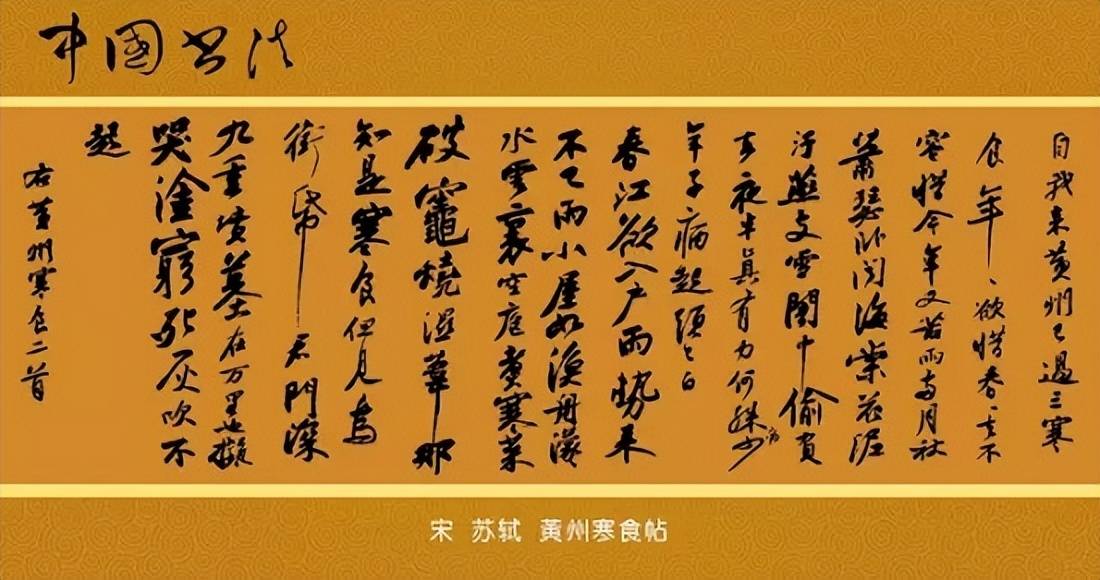 中国书法
自我来黄州已过三寒
食年々欲惜春春去不
容惜今年又苦雨两月秋
萧瑟卧闻海棠花泥
污燕支雪闇中偷负
去夜半真有力何殊少
年子病起须已白
春江欲入户雨势来
不已雨小屋如渔舟濛
水云里空庖煮寒菜
破竈烧湿苇那
知是寒食但见乌
衔帋君门深
九重坟墓在万里也拟
哭涂穷死灰吹不
起
右黄州寒食二首
宋 苏轼 黄州寒食帖